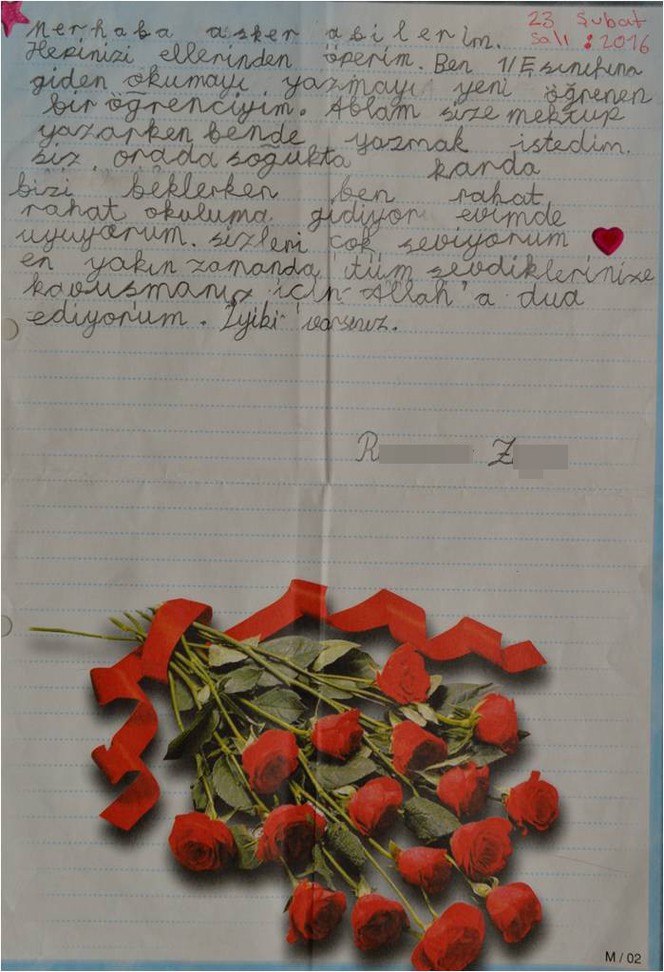 23 Şubat
Salı : 2016
Merhaba asker abilerim.
Hepinizi ellerinden öperim. Ben 1/E sınıfına
giden okumayı yazmayı yeni öğrenen
bir öğrenciyim. Ablam size mektup
yazarken bende yazmak istedim.
siz orada soğukta karda
bizi beklerken ben rahat
rahat okuluma gidiyor evimde
uyuyorum. sizleri çok seviyorum
en yakın zamanda tüm sevdiklerinize
kavuşmanız için Allah'a dua
ediyorum. İyiki varsınız.
R Z
M / 02